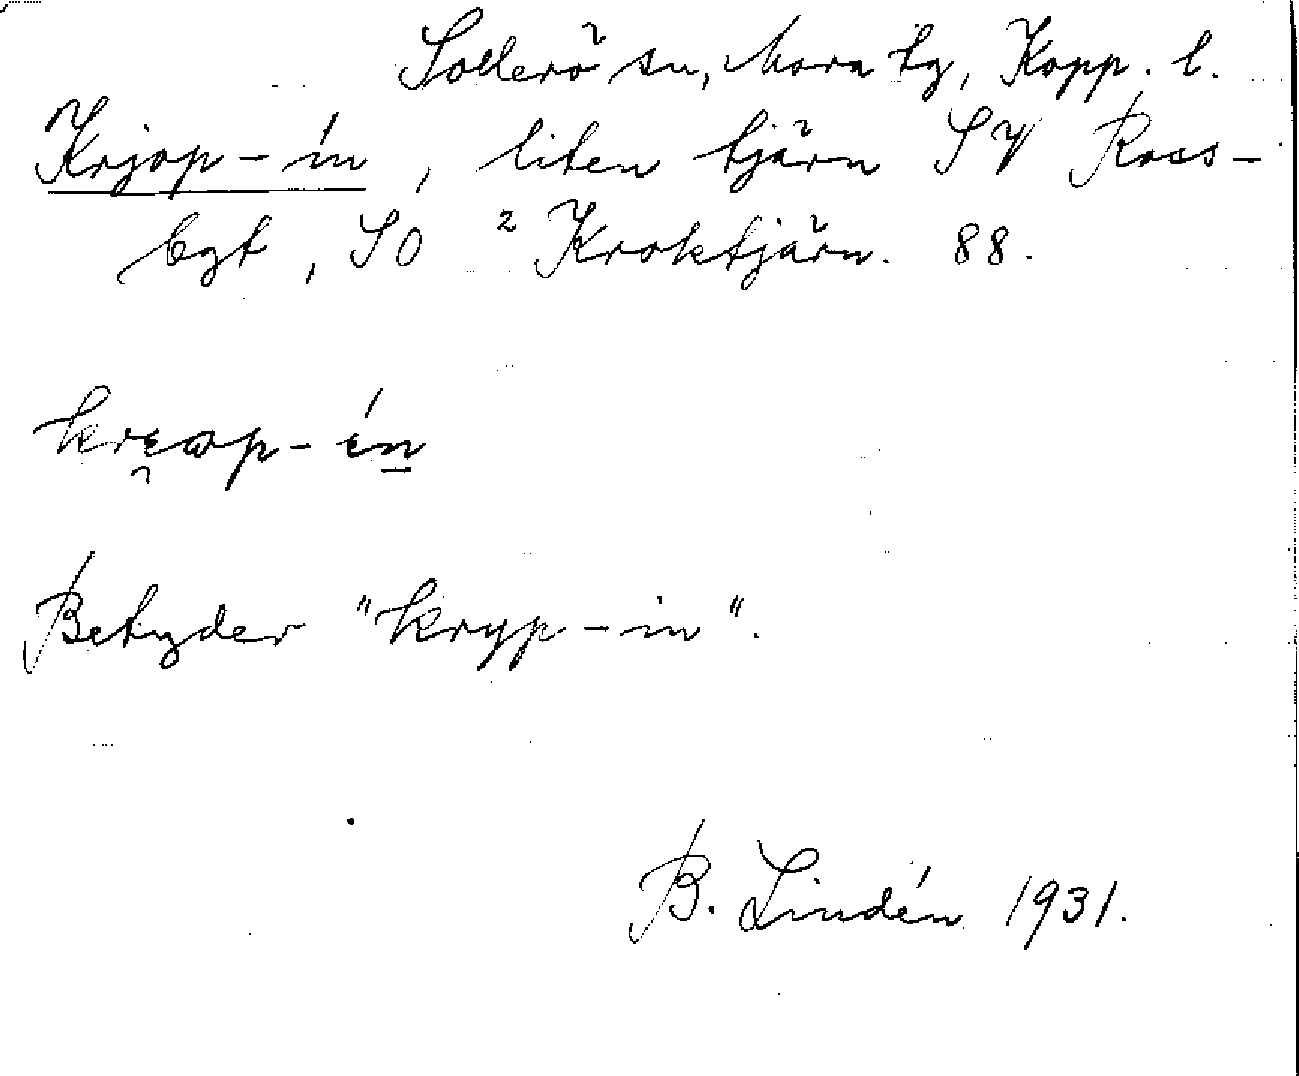 Sollerö sn, Mora tg, Kopp. l.
Krjop-ín, liten tjärn SV Ross-
bgt, SO ²Kroktjärn. 88.
-ín
Betyder "kryp-in".
B. Lindén 1931.